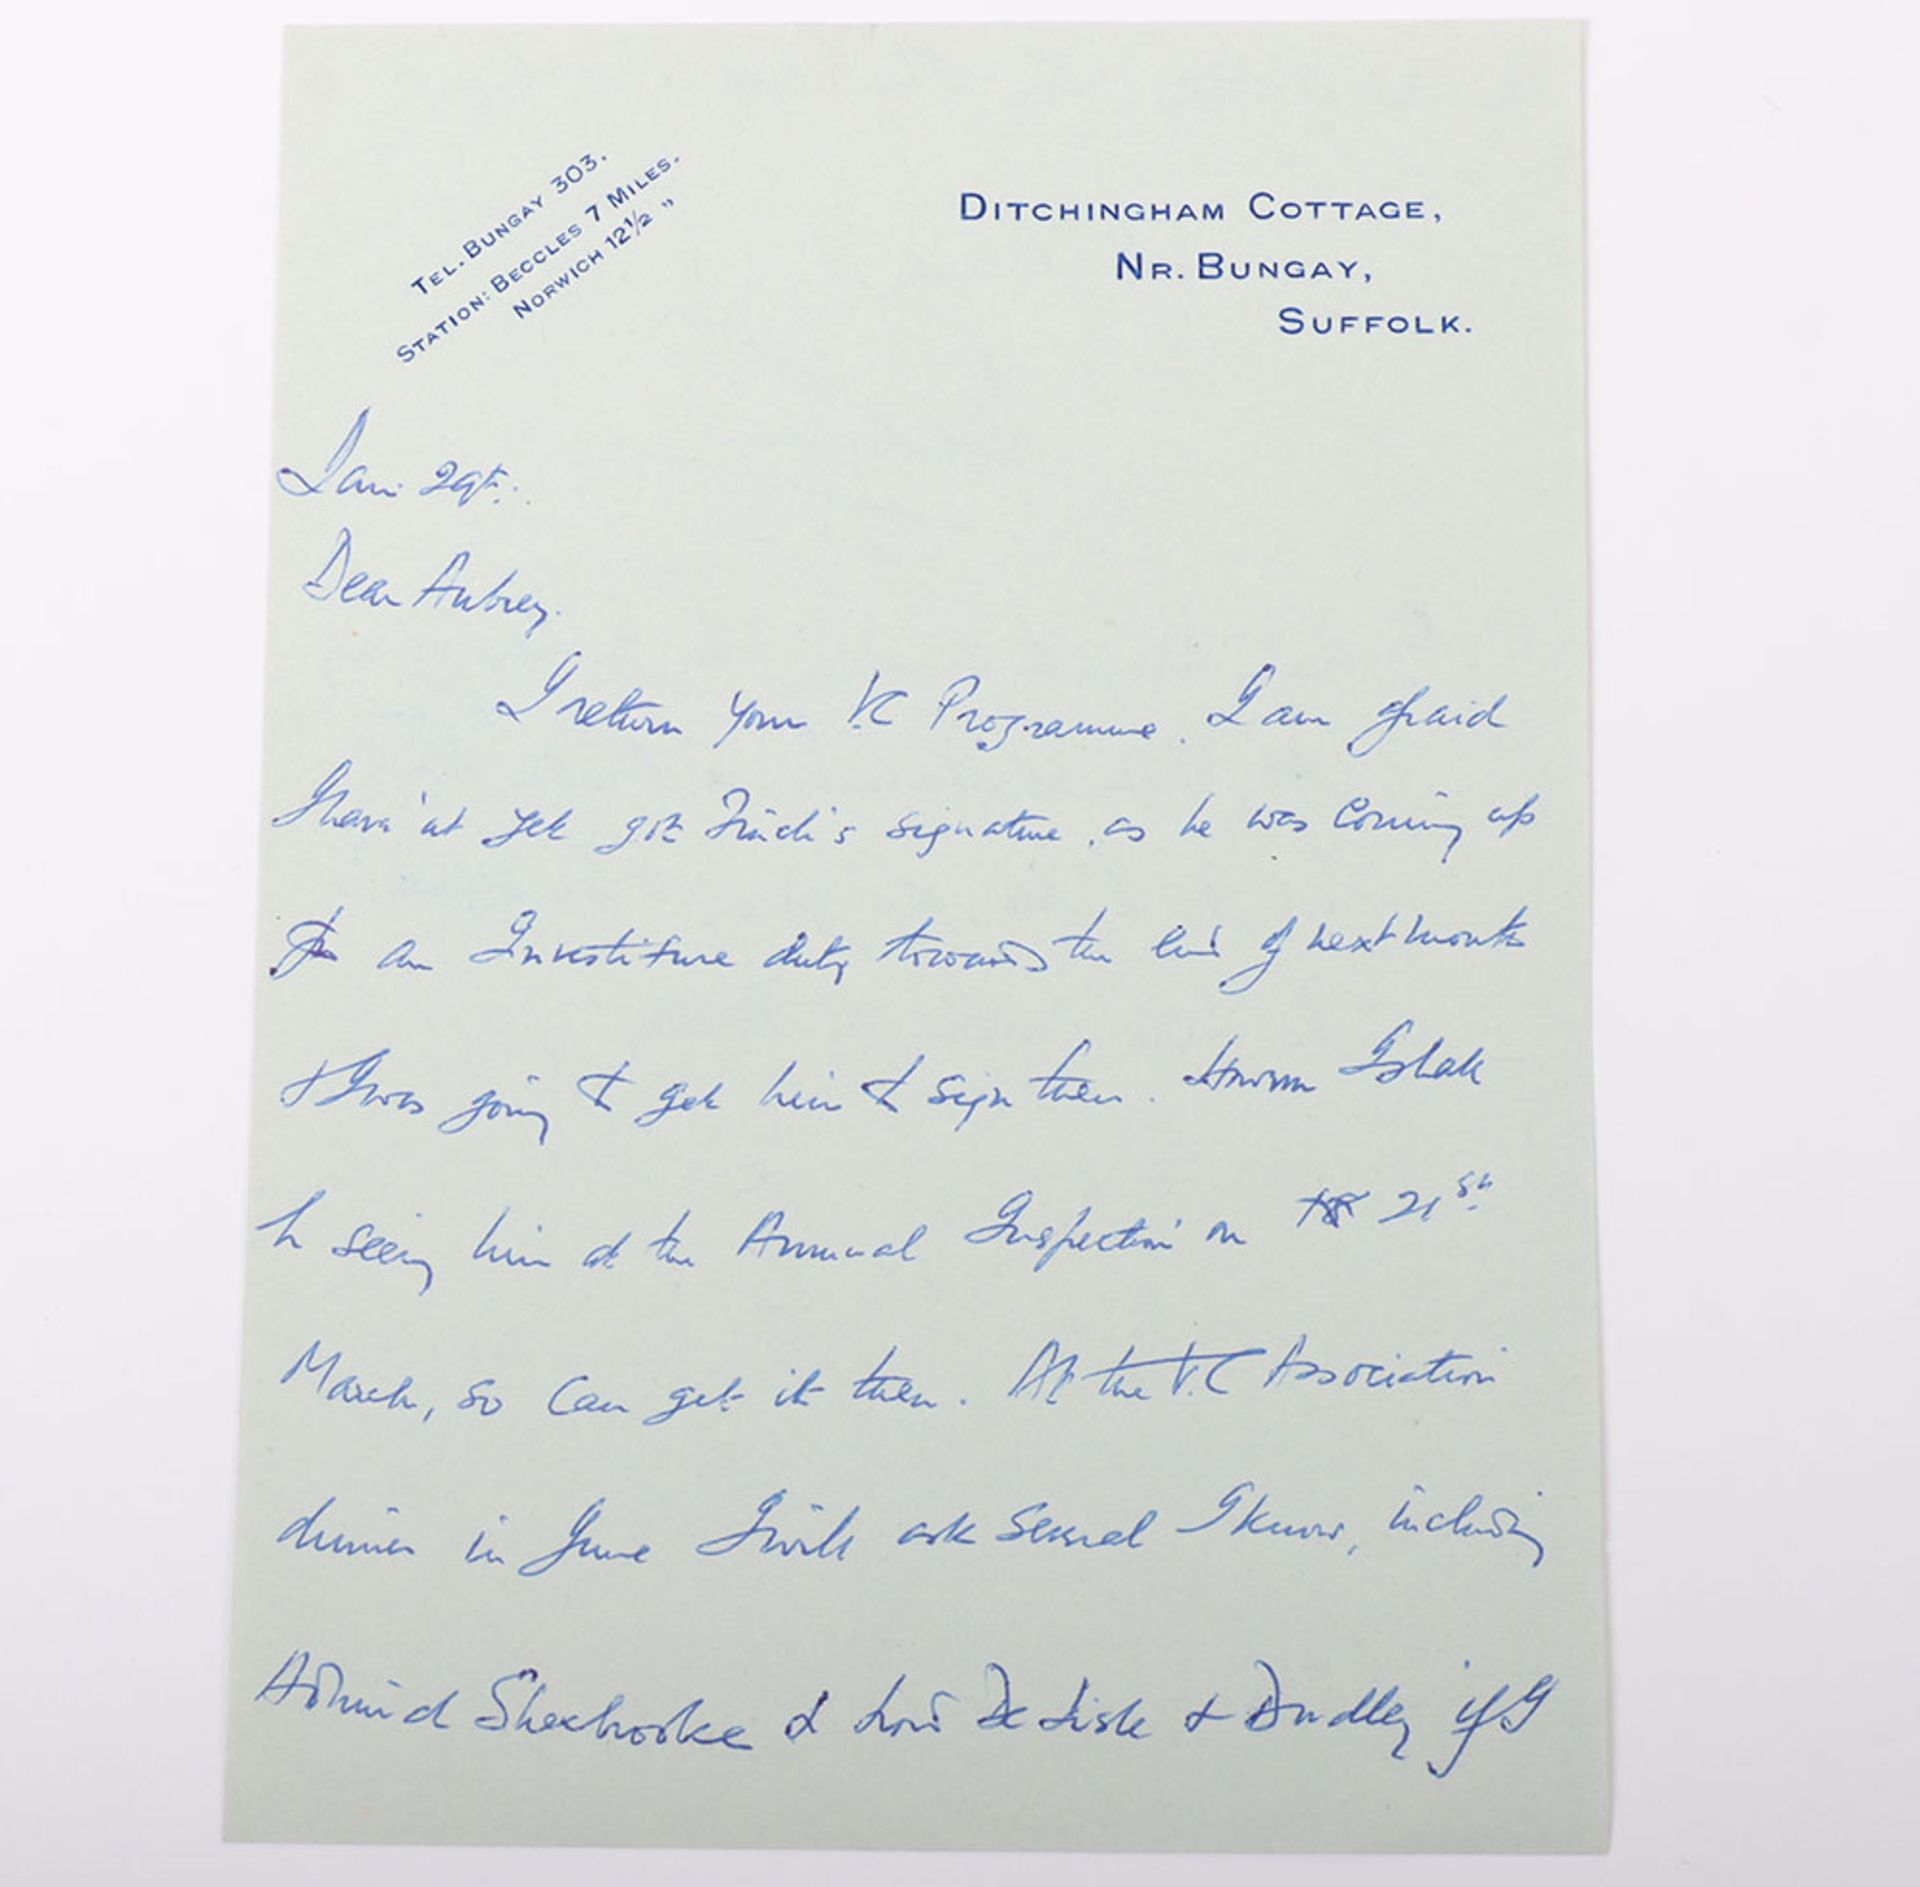 TEL. BUNGAY 303.
STATION: BECCLES 7 MILES.
NORWICH 12½ "
DITCHINGHAM COTTAGE,
NR. BUNGAY,
SUFFOLK.
Jan 29th.
Dear Aubrey.
I return your VC Programme. I am afraid
I haven't yet got signature, as he was coming up
for an Investiture duty towards the end of next month
& I was going to get him to sign then. However I shall
be seeing him at the Annual Inspection on 18 21st
March, so can get it then. At the V.C Association
dinner in June I will ask several I know, including
Admiral Sherbrooke & Lord De Lisle & Dudley if I